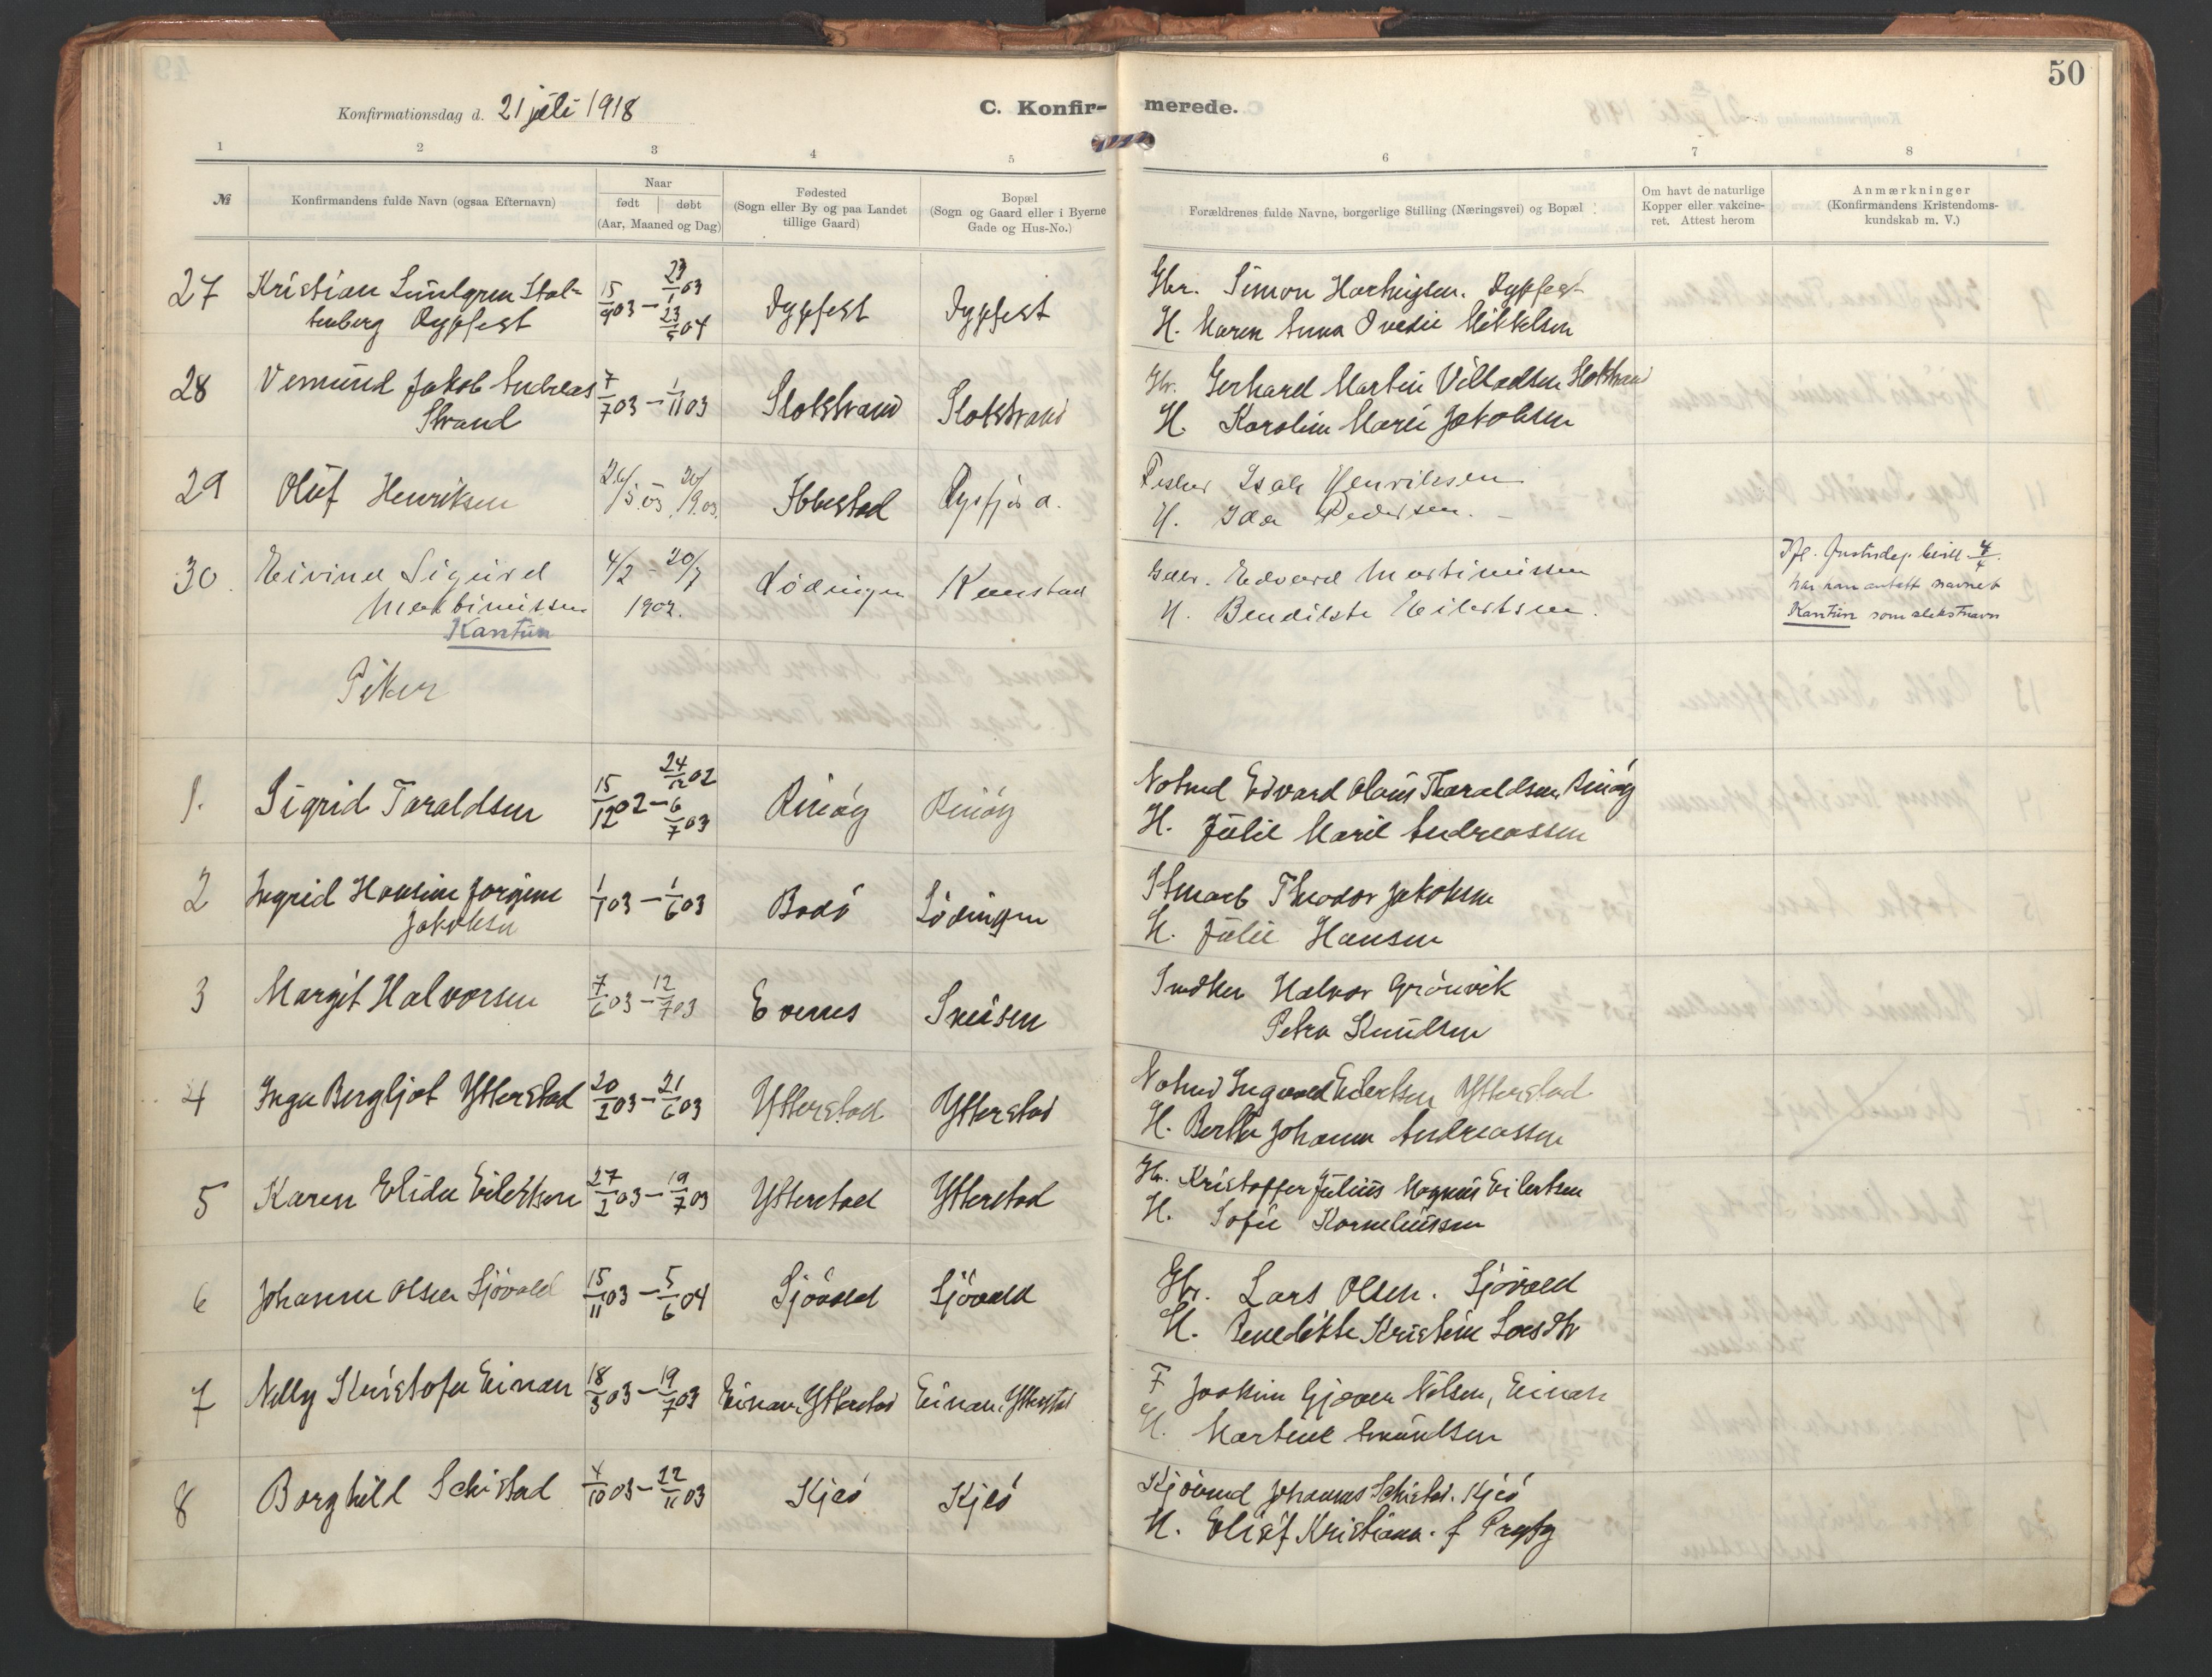 50
Konfirmationsdag d. 21 juli 1918
C. Konfir-merede.
1 2 3 4 5 6 7 8
№
Konfirmandens fulde Navn (ogsaa Efternavn)
Naar
født døbt
(Aar, Maaned og Dag)
Fødested
(Sogn eller By og paa Landet
tillige Gaard)
Bopæl
(Sogn og Gaard eller i Byerne
Gade og Hus-No.)
Forældrenes fulde Navne, borgerlige Stilling (Næringsvei) og Bopæl
Om havt de naturlige
Kopper eller vakcine-
ret. Attest herom
Anmærkninger
(Konfirmandens Kristendoms-
kundskab m. V.)
27 Kristian Lundgren Stol- 15/9 03 – 23/1 03 Dypfest Dypfest Gbr. Simon Hartvigsen. Dypfest
tenberg Dypfest 23/5 04 H. Maren Anna Mikkelsen
28 Vemund Jakob Andreas 7/7 03 – 1/11 03 Slotstrand Slotstrand Gbr. Gerhard Martin Villadsen Slotstrand
Strand H. Karolin Marie Jakobsen
29 Oluf Henriksen 26/5.03 20/9.03. Ibbestad Fisker Isak Henriksen
H. Ida Pedersen.
30. Eivind Sigurd 4/2 – 20/7 Lødingen Kanstad Gbr. Edvard Martinussen
Martinussen 1902. H. Bendikte Eilertsen.
Kantun
Ifl. Justisdep. bevill. 4/4
har han antatt navnet
Kantun som slektsnavn
Piker
1. Sigrid Taraldsen 15/12 02 – 24/12 02 Rinøy Rinøy Notmd Edvard Olaus Tharaldsen, Rinøy
6/7 03 H. Julie Marie Andreassen
2 Ingrid Hansine Jørgine 1/1 03 – 1/6 03 Bodø Lødingen Theodor Jakobsen
Jakobsen H. Julie Hansen
3 Margit Halvorsen 7/6 03 – 12/7 03 Evenes Snedker Halvor Grønvik
Petra Knudsen
4 Inga Bergljot Ytterstad 20/2 03 – 21/6 03 Ytterstad Ytterstad Notmd Ingvald Eilertsen Ytterstad
H. Berthe Johanna Andreassen
5 Karen Elida Eilertsen 27/2 03 – 19/7 03 Ytterstad Ytterstad Gbr. Kristoffer Julius Magnus Eilertsen
H. Sofie Korneliussen
6 Johanne Olsen Sjövold 15/11 03 – 5/6 04 Sjövold Sjövold Gbr. Lars Olsen. Sjövold
H. Benedikte Kristine Larsdtr
7 Nelly Kristofa Einan 18/3 03 – 19/7 03 Einan, Ytterstad Einan, Ytterstad F Joakim Gjæver Nilsen, Einan
H. Martine Amundsen
8 Borghild Schistad 4/10 03 – 22/11 03 Kjeø Kjeø Johannes Schistad. Kjeø
H. Elisef Kristiana. f Prytz